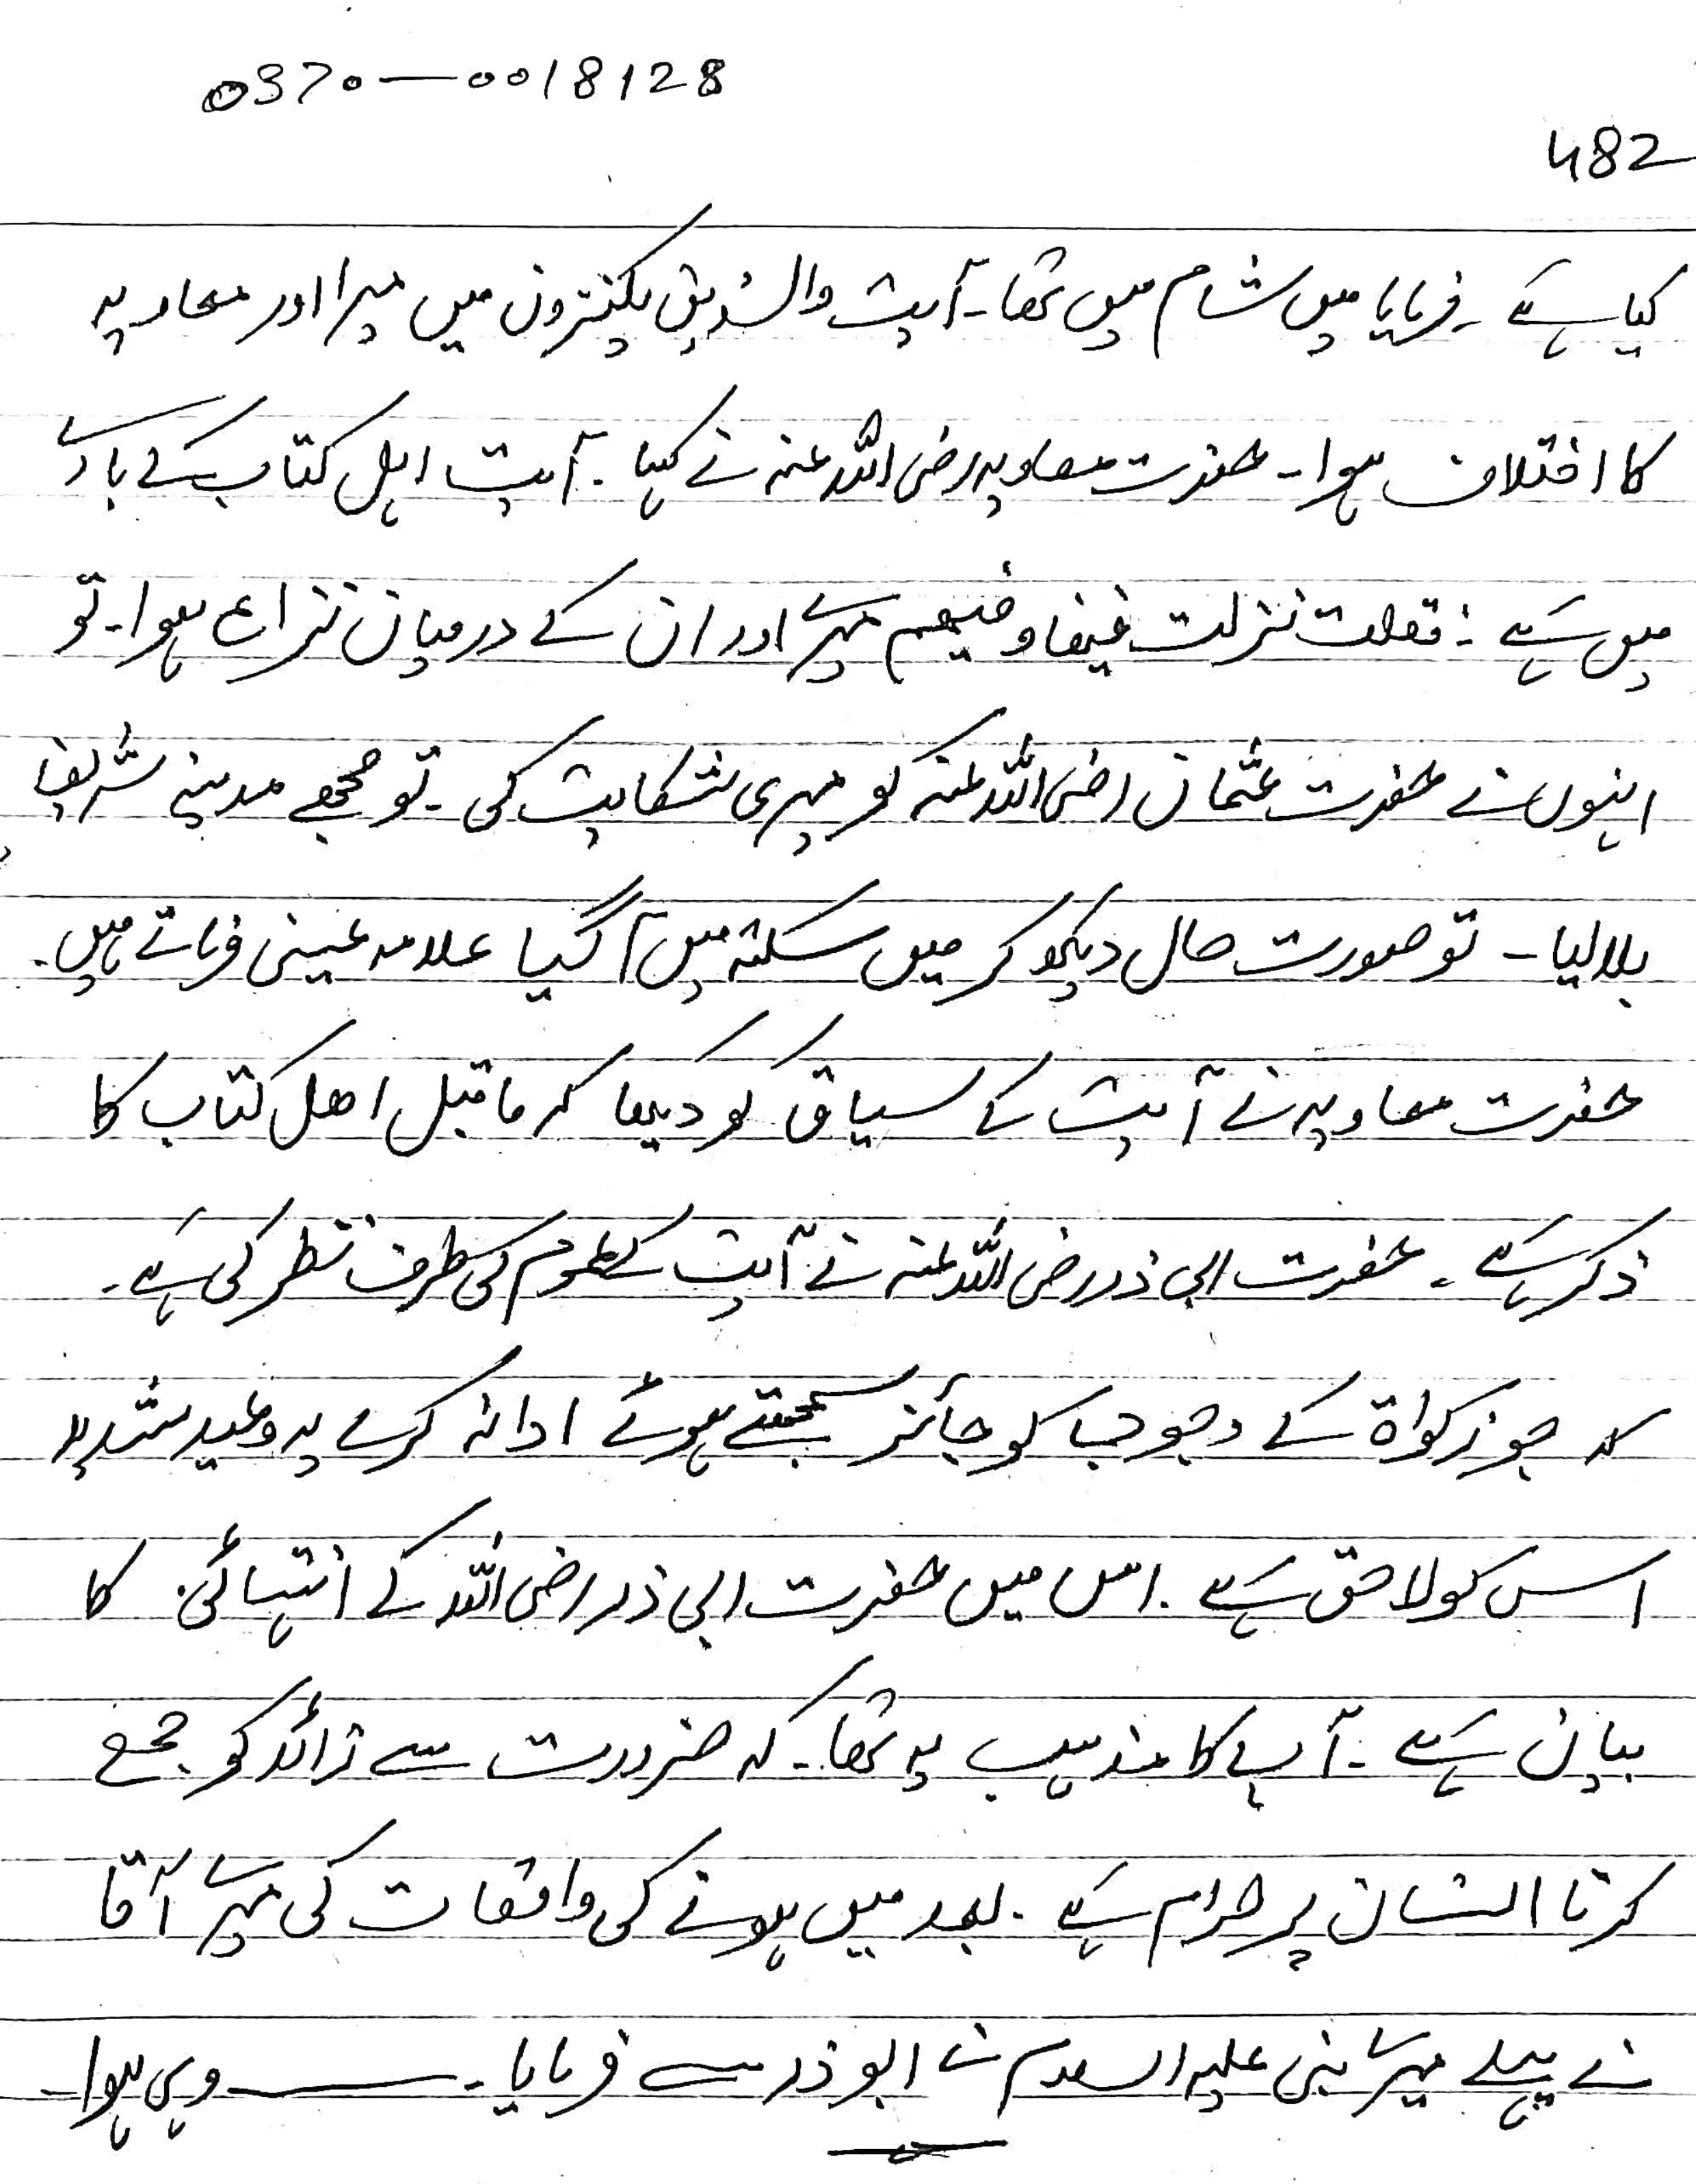 0370-0018128
482
کیا ہے۔ فرمایا میں شام میں تھا۔ آیت والذین یکنزون میں میرا اور معاویہ
کا اختلاف ہوا۔ حضرت معاویہ رضی اللہ عنہ نے کہا۔ آیت اہل کتاب کے بارے
میں ہے۔ فقلت نزلت فینا و فیھم میرے اور ان کے درمیان نزاع ہوا۔ تو
انہوں نے حضرت عثمان رضی اللہ عنہ کو میری شکایت کی۔ تو مجھے مدینے شریف
بلا لیا۔ تو صورت حال دیکھ کر میں سکتہ میں آ گیا علامہ عینی فرماتے ہیں۔
حضرت معاویہ نے آیت کے سیاق کو دیکھا کہ ماقبل اھل کتاب کا
ذکر ہے۔ حضرت ابی ذر رضی اللہ عنہ نے آیت کے عموم کی طرف نظر کی ہے۔
کہ جو زکواۃ کے وجوب کو جائز سمجھتے ہوئے ادا نہ کرے یہ وعید شدید
اس کو لاحق ہے۔ اس میں حضرت ابی ذر رضی اللہ کے انتہائی کا
بیان ہے۔ آپ کا مذہب یہ تھا۔ کہ ضرورت سے زائد کو جمع
کرنا انسان پر حرام ہے۔ بعد میں ہونے کی واقعات کی میرے آقا
نے پہلے میرے نبی علیہ السلام نے ابوذر سے فرمایا۔ وہی ہوا۔